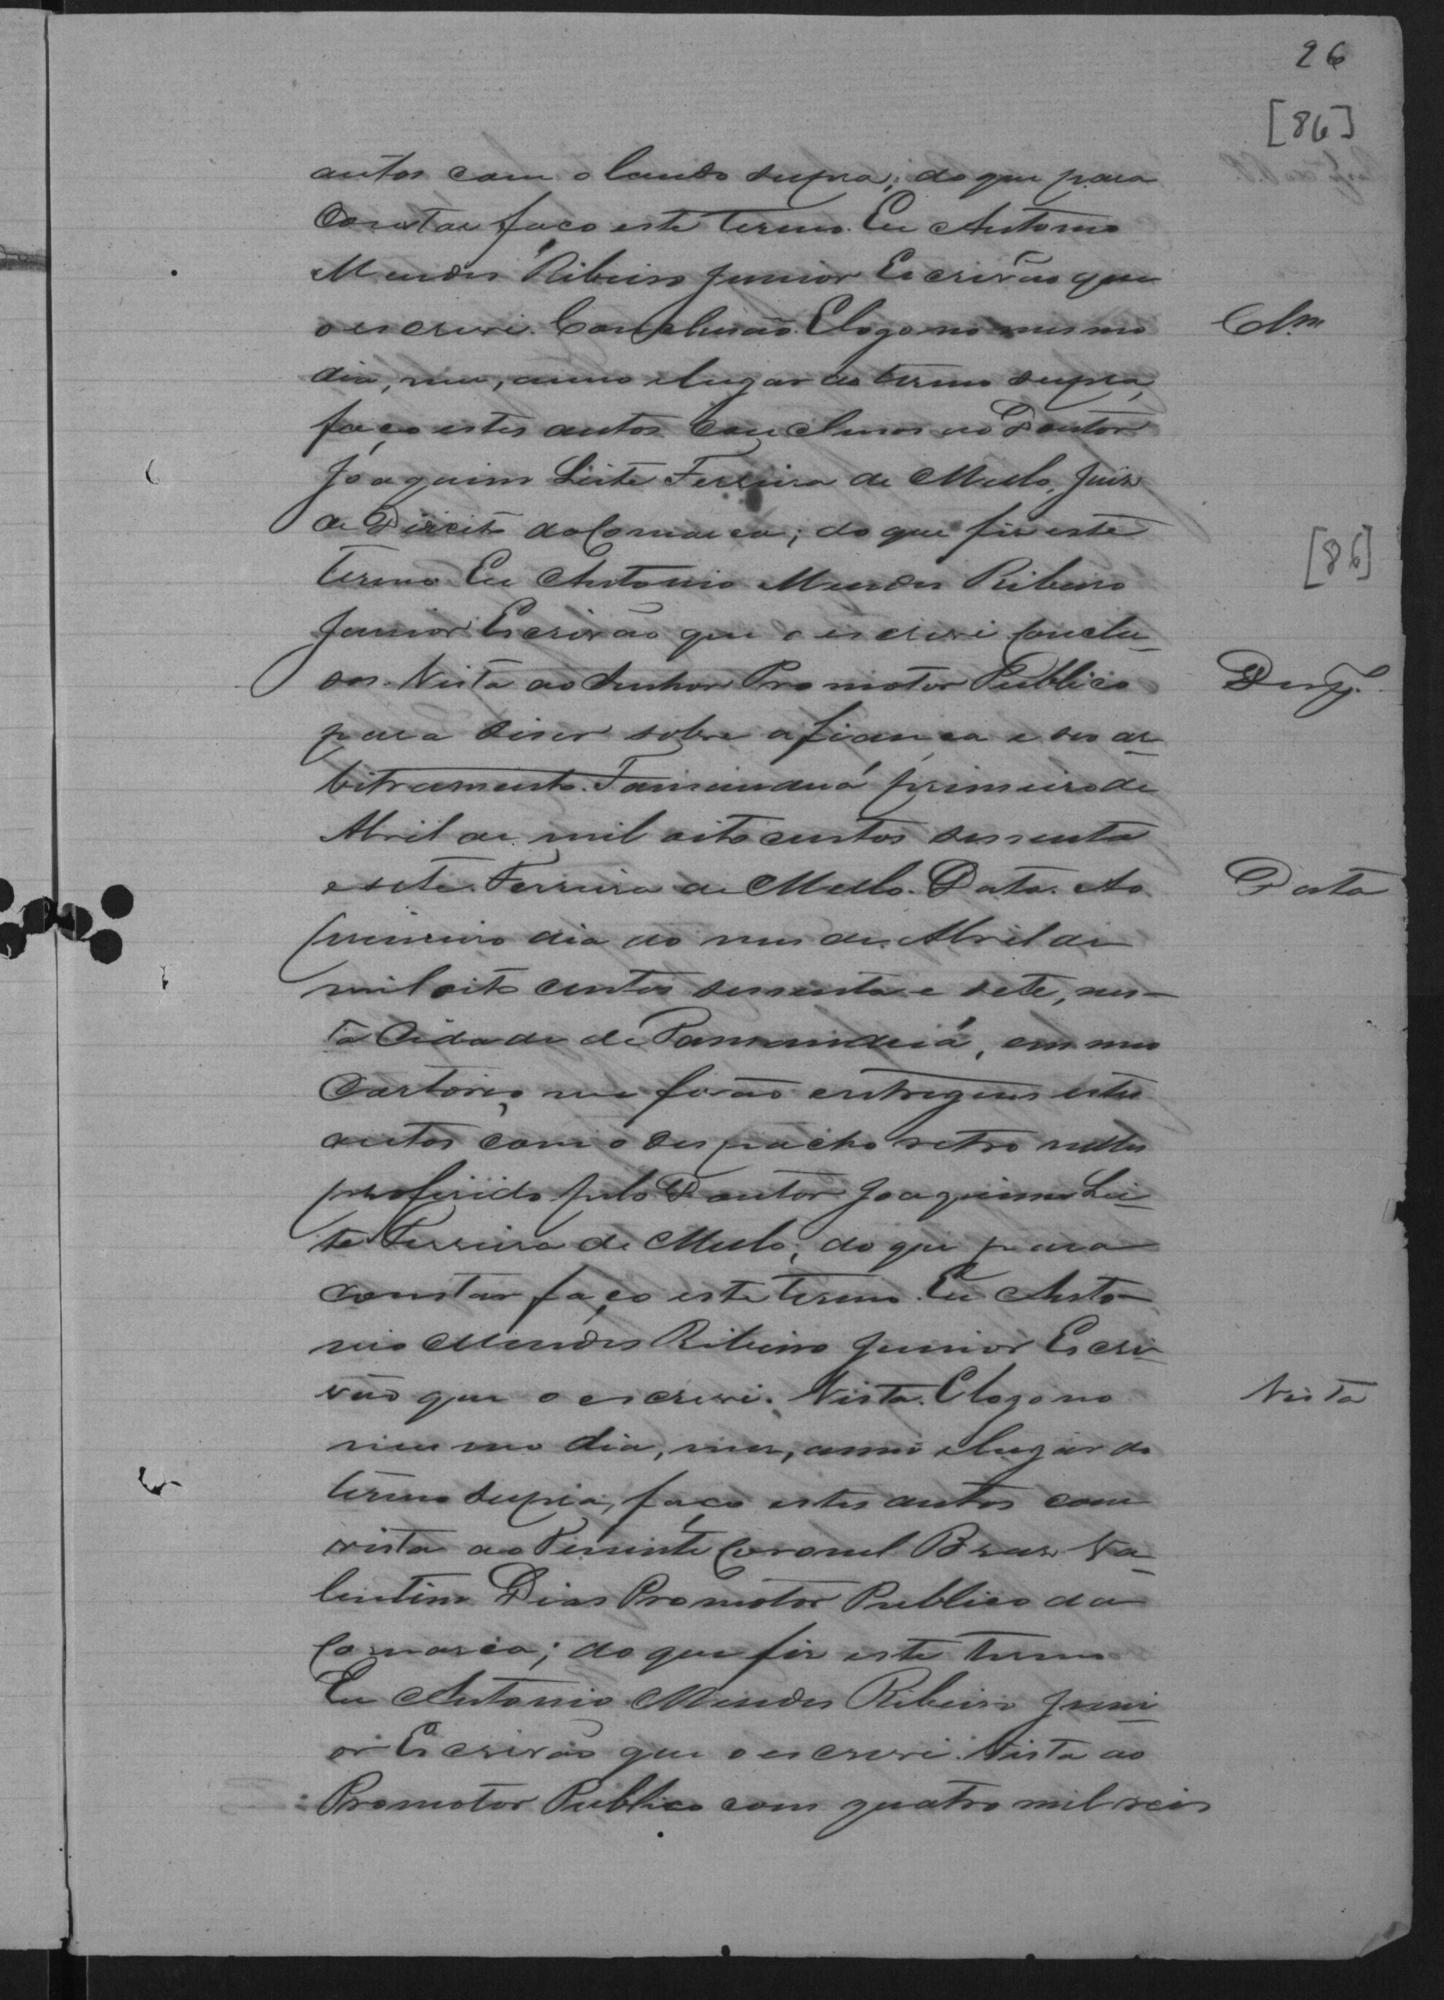 26
[86]
autos com o laudo supra; do que para
constar faço este termo. Eu Antonio
Mendes Ribeiro Junior Escrivão que
o escrevi. Conclusão. E logo no mesmo
Clm.
dia, mez, anno e lugar do termo supra,
faço estes autos conclusos ao Doutor
Joaquim Leite Ferreira de Mello, Juiz
de Direito da Comarca; do que fiz este
[86]
termo Eu Antonio Mendes Ribeiro
Junior Escrivão que o escrevi Conclu-
sos. Vista ao Senhor Promotor Publico
Desp.
para dizer sobre a fiança e seo ar-
bitramento. Tamanduá primeiro de
Abril de mil oito centos sessenta
e sete. Ferreira de Mello. Data. Ao
Data
primeiro dia do mes de Abril de
mil oito centos sessenta e sete, nes-
ta Cidade de Tamanduá, em meo
Cartorio me forão entregues estes
autos com o despacho retro nelles
proferido pelo Doutor Joaquim Lei-
te Ferreira de Mello; do que para
constar faço este termo. Eu Anto-
nio Mendes Ribeiro Junior Escri-
vão que o escrevi. Vista. E logo no
Vista
mesmo dia, mez, anno e lugar do
termo supra, faço estes autos com
vista ao Tenente Coronel Braz Va-
lentim Dias Promotor Publico da
Comarca; do que fiz este termo
Eu Antonio Mendes Ribeiro Juni-
or Escrivão que o escrevi. Vista ao
Promotor Publico com quatro mil reis